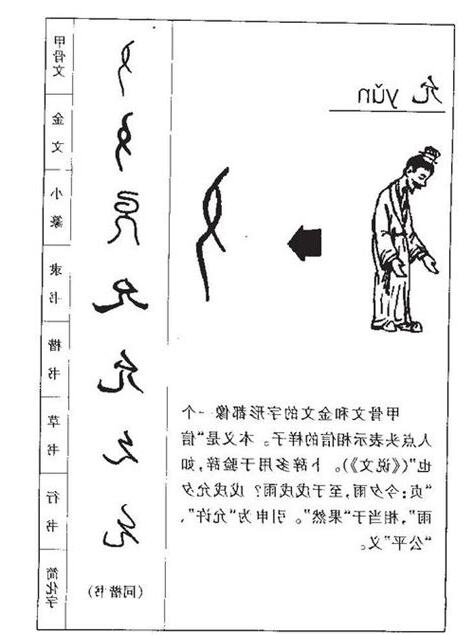 允 yǔn
甲骨文和金文的字形都像一个
人点头表示相信的样子。本义是“信
也”(《说文》)。卜辞多用于验辞,如
“贞:今夕雨,至于戊戌雨?戊戌允夕
雨”,相当于“果然”。引申为“允许”、
“公平”义。
甲骨文 允
金文 允
小篆 允
隶书 允
楷书 允
草书 允
行书 允
简化字 (同楷书)